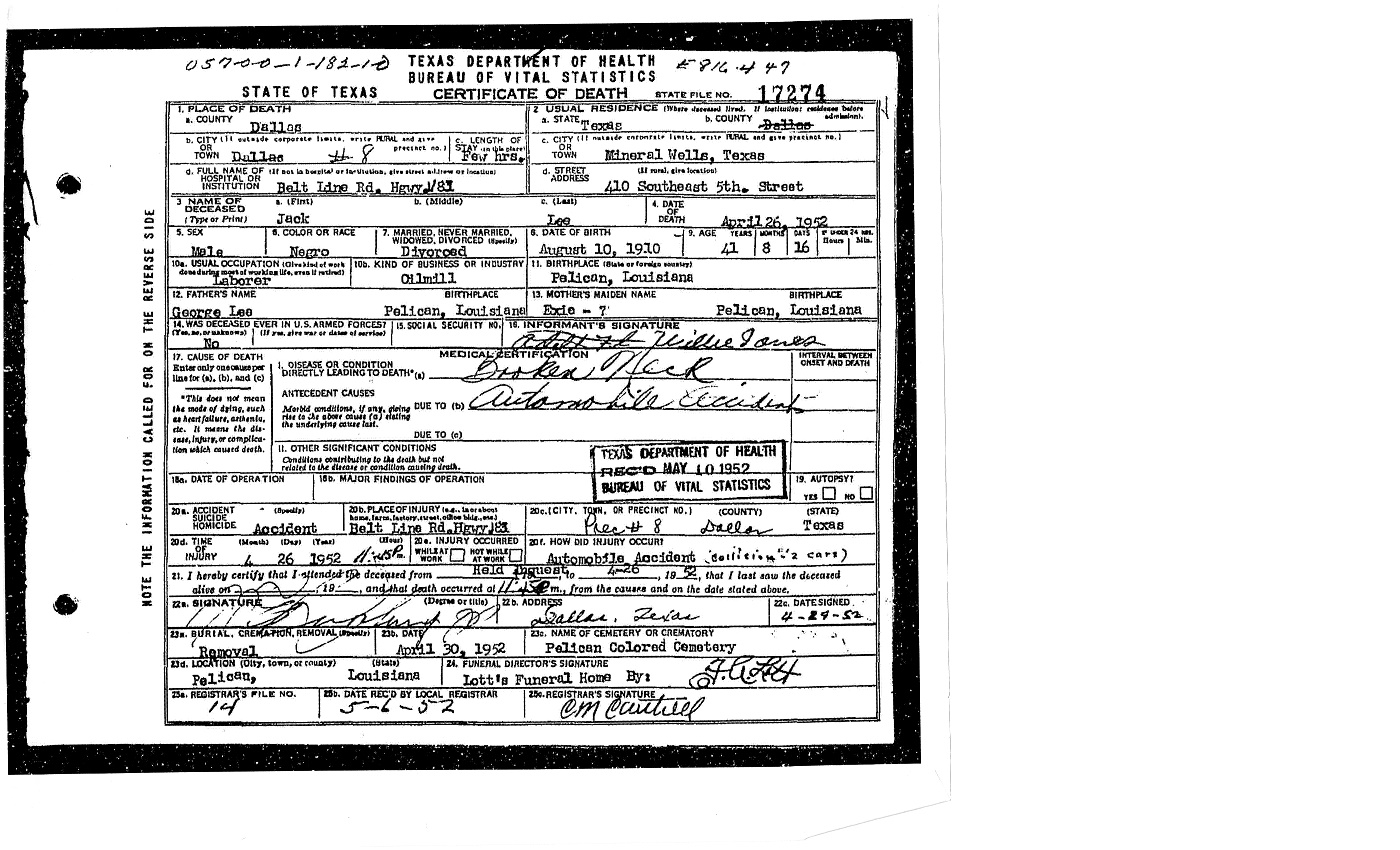 057-00-1-182-10 TEXAS DEPARTMENT OF HEALTH E 816.4 47
BUREAU OF VITAL STATISTICS
STATE OF TEXAS CERTIFICATE OF DEATH STATE FILE NO. 17274
1. PLACE OF DEATH 2 USUAL RESIDENCE (Where deceased lived. If institution: residence before admission).
a. COUNTY Dallas a. STATE Texas b. COUNTY Dallas
b. CITY (If outside corporate limits, write RURAL and give precinct no.) c. LENGTH OF STAY (in this place) c. CITY (If outside corporate limits, write RURAL and give precinct no.)
OR TOWN Dallas # 8 Few hrs. OR TOWN Mineral Wells, Texas
d. FULL NAME OF (If not in hospital or institution, give street address or location) d. STREET (If rural, give location)
HOSPITAL OR INSTITUTION Belt Line Rd. Hgwy 183 ADDRESS 410 Southeast 5th. Street
3 NAME OF DECEASED a. (First) b. (Middle) c. (Last) 4. DATE OF DEATH
(Type or Print) Jack Lee April 26, 1952
5. SEX 6. COLOR OR RACE 7. MARRIED, NEVER MARRIED, WIDOWED, DIVORCED (Specify) 8. DATE OF BIRTH 9. AGE YEARS MONTHS DAYS IF UNDER 24 HRS. Hours Min.
Male Negro Divorced August 10, 1910 41 8 16
10a. USUAL OCCUPATION (Give kind of work done during most of working life, even if retired) 10b. KIND OF BUSINESS OR INDUSTRY 11. BIRTHPLACE (State or foreign country)
Laborer Oilmill Pelican, Louisiana
12. FATHER'S NAME BIRTHPLACE 13. MOTHER'S MAIDEN NAME BIRTHPLACE
George Lee Pelican, Louisiana Exie - ? Pelican, Louisiana
14. WAS DECEASED EVER IN U.S. ARMED FORCES? 15. SOCIAL SECURITY NO. 16. INFORMANT'S SIGNATURE
(Yes, no, or unknown) (If yes, give war or dates of service)
No Willie Jones
17. CAUSE OF DEATH MEDICAL CERTIFICATION INTERVAL BETWEEN ONSET AND DEATH
Enter only one cause per line for (a), (b), and (c)
I. DISEASE OR CONDITION DIRECTLY LEADING TO DEATH* (a) Broken Neck
*This does not mean the mode of dying, such as heart failure, asthenia, etc. It means the disease, injury, or complication which caused death.
ANTECEDENT CAUSES
Morbid conditions, if any, giving rise to the above cause (a) stating the underlying cause last.
DUE TO (b) Automobile Accident
DUE TO (c)
II. OTHER SIGNIFICANT CONDITIONS
Conditions contributing to the death but not related to the disease or condition causing death.
TEXAS DEPARTMENT OF HEALTH
REC'D MAY 10 1952
BUREAU OF VITAL STATISTICS
18a. DATE OF OPERATION 18b. MAJOR FINDINGS OF OPERATION 19. AUTOPSY?
YES NO
20a. ACCIDENT SUICIDE HOMICIDE (Specify) 20b. PLACE OF INJURY (e.g., in or about home, farm, factory, street, office bldg., etc.) 20c. (CITY, TOWN, OR PRECINCT NO.) (COUNTY) (STATE)
Accident Belt Line Rd. Hgwy 183 Prec # 8 Dallas Texas
20d. TIME OF INJURY (Month) (Day) (Year) (Hour) 20e. INJURY OCCURRED 20f. HOW DID INJURY OCCUR?
4 26 1952 11:45P m. WHILE AT WORK NOT WHILE AT WORK Automobile Accident (collision 2 cars)
21. I hereby certify that I attended the deceased from Held Inquest, to 4-26, 1952, that I last saw the deceased
alive on , 19 , and that death occurred at 11:45P m., from the causes and on the date stated above.
22a. SIGNATURE (Degree or title) 22b. ADDRESS 22c. DATE SIGNED
Dallas, Texas 4-29-52
23a. BURIAL, CREMATION, REMOVAL (Specify) 23b. DATE 23c. NAME OF CEMETERY OR CREMATORY
Removal April 30, 1952 Pelican Colored Cemetery
23d. LOCATION (City, town, or county) (State) 24. FUNERAL DIRECTOR'S SIGNATURE
Pelican, Louisiana Lott's Funeral Home By: J. A. Lott
25a. REGISTRAR'S FILE NO. 25b. DATE REC'D BY LOCAL REGISTRAR 25c. REGISTRAR'S SIGNATURE
14 5-6-52 CM Cantrell
NOTE THE INFORMATION CALLED FOR ON THE REVERSE SIDE